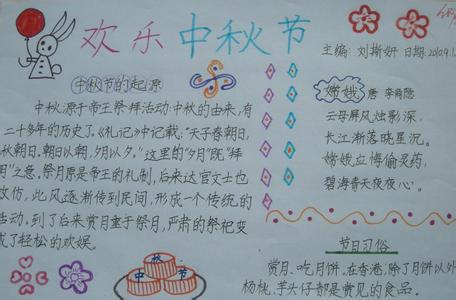 欢乐中秋节
主编:刘斯妍 日期:2010.9.1
中秋节的起源
中秋源于帝王祭拜活动.中秋的由来,有
二十多年的历史了.《礼记》中记载,“天子春朝日,
秋朝日.朝日以朝,夕月以夕。”这里的“夕月”既“拜
月”之意,祭月原是帝王的礼制,后来达官文士也
效仿,此风逐渐传到民间,形成一个传统的
活动.到了后来赏月重于祭月,严肃的祭祀变
成了轻松的欢娱。
嫦娥 唐 李商隐
云母屏风烛影深,
长江渐落晓星沉。
嫦娥应悔偷灵药,
碧海青天夜夜心。
节日习俗
赏月、吃月饼.在香港,除了月饼以外
杨桃、芋头仔都是常见的食品。
中 秋 节